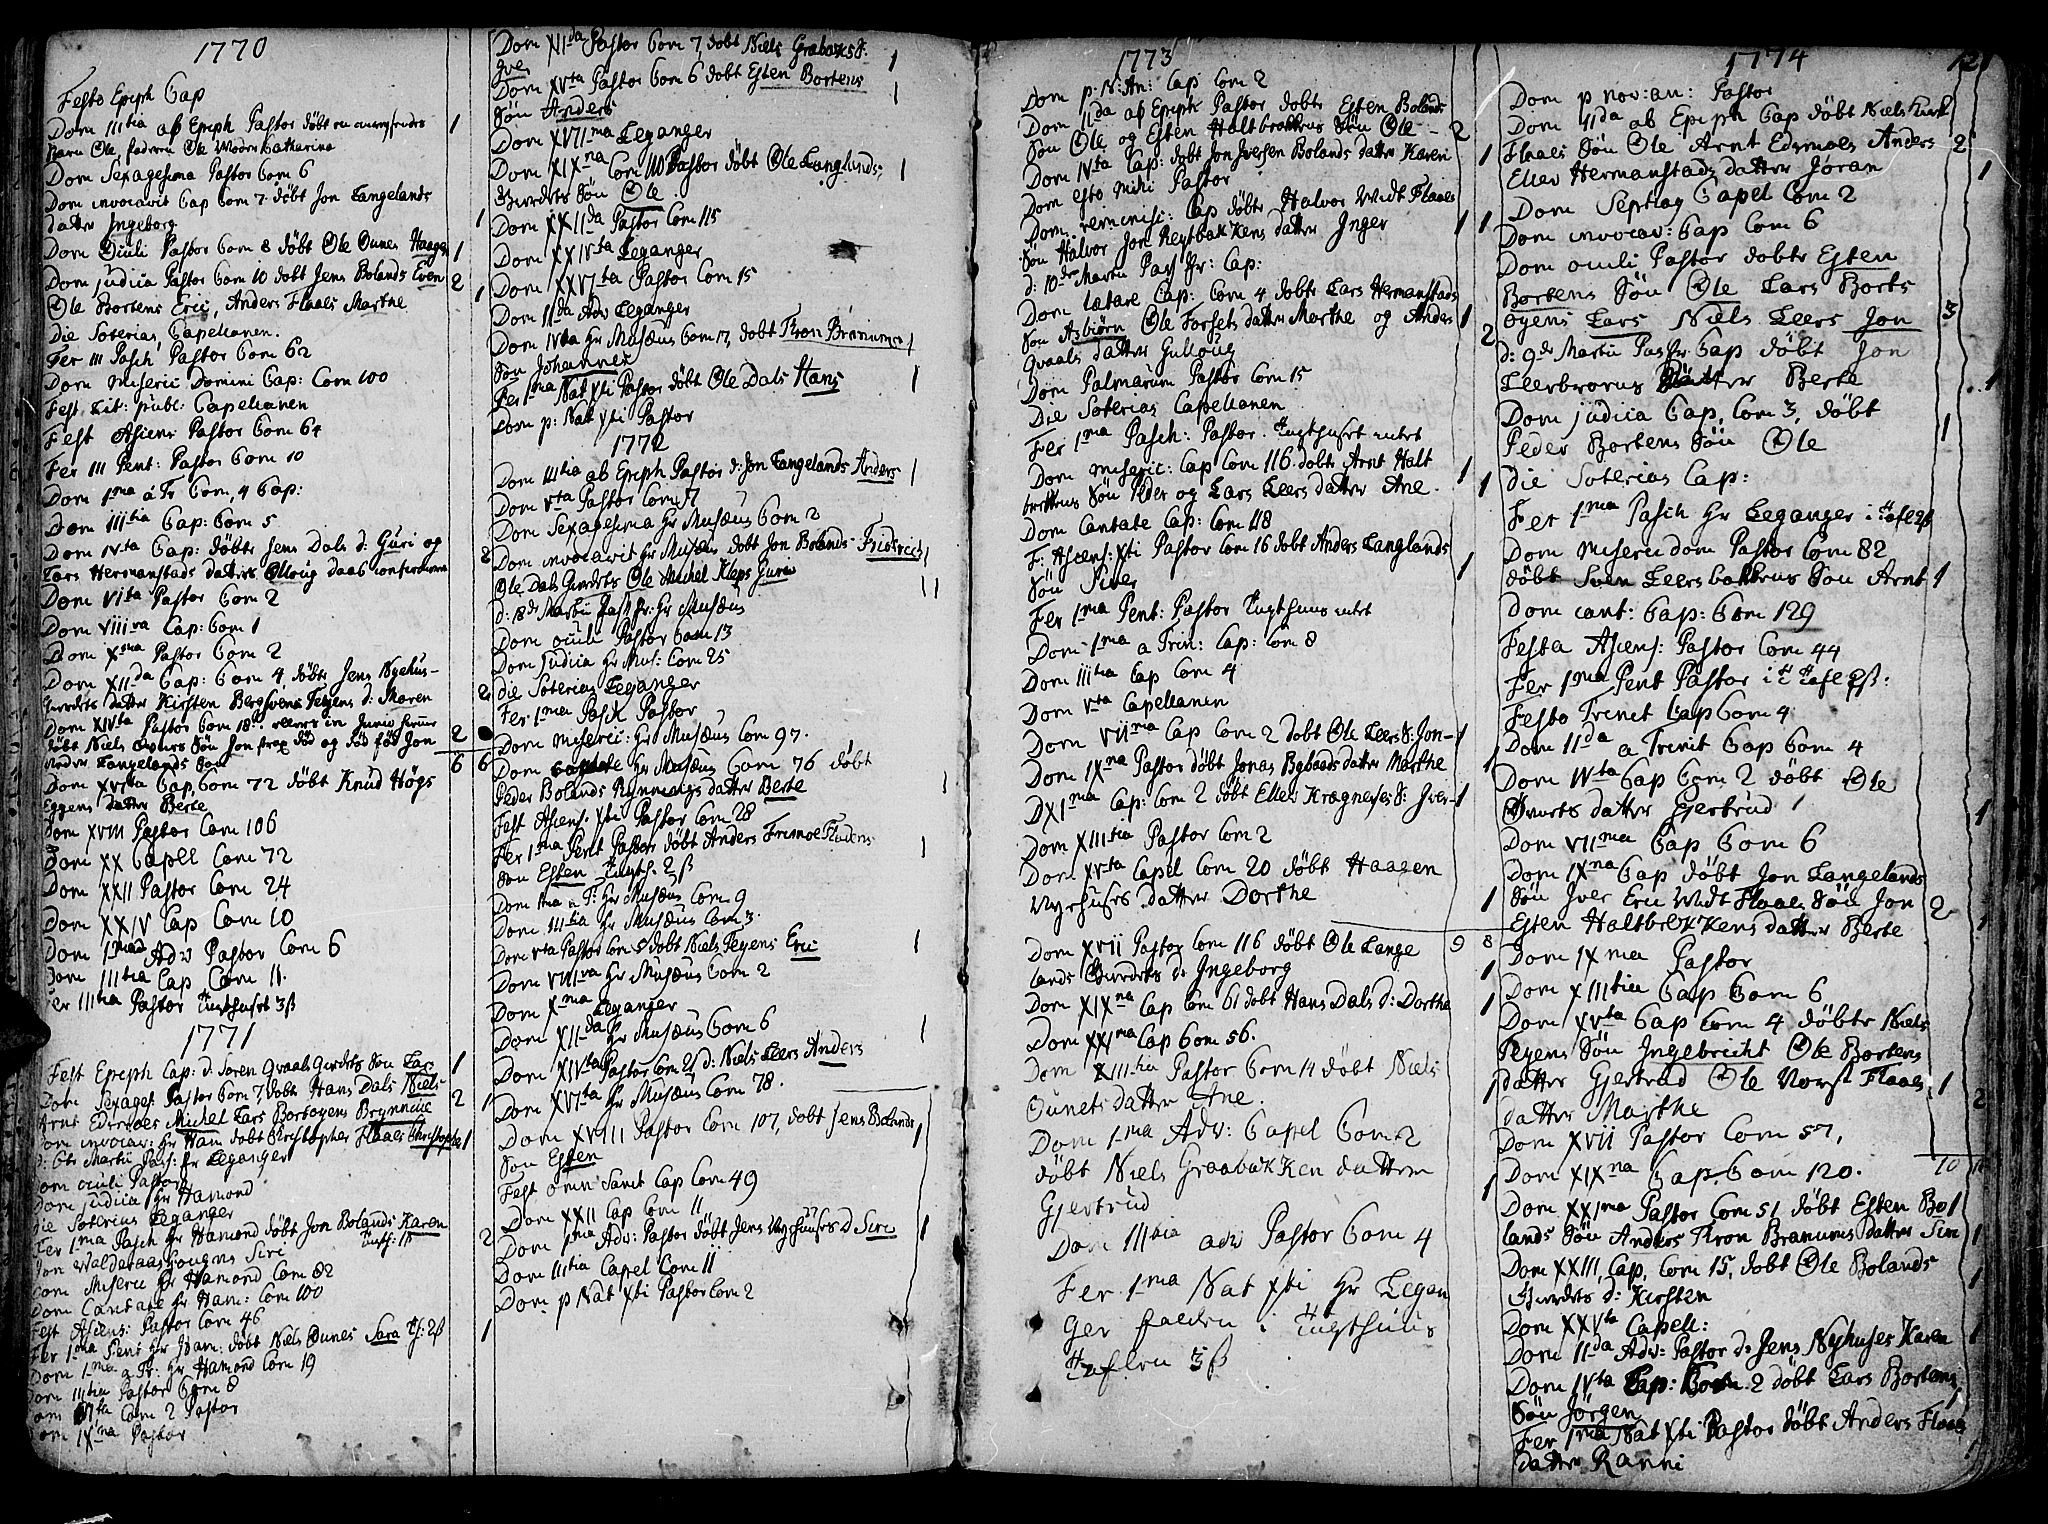 1770
Festo Epiph Cap
Dom IIItia ab Epiph Pastor döbt en
Barn Ole faderen Ole Moder Catharina
Dom Sexagesima Pastor Com 6
Dom invocavit Cap Com 7. döbt Jon Langelands
datter Ingeborg
Dom Oculi Pastor Com 8 döbt Ole Ounes Haagen 1
Dom judica Pastor Com 10 dobt Jens Bolands Even 2
Ole Bortens Eric, Anders Flaaes Marthe
Die Soterias, Capellanen.
Fer III Pasch Pastor Com 62
Dom Miseric Domini Cap: Com 100
Fest Lit: publ: Capellanen
Fest Ascens Pastor Com 64
Fer III Pent: Pastor Com 10
Dom 1ma a Tr Com, 4 Cap:
Dom IIItia Cap: Com 5
Dom IVta Cap: döbte Jens Dals d: Guri og
Lars Hermanstads datter Olloug
Dom VIta Pastor Com 2
Dom VIIIva Cap: Com 1
Dom Xma Pastor Com 2
Dom XIIda Cap: Com 4 döbt Jens Nyehus-
datter Kirsten Bergsvens Teigens d: Maren
Dom XIVta Pastor Com 18
döbt Niels Söu Jon strax död og död föd Jon
Langelands Söu
Dom XVIta Cap, Com 72 döbt Knud Högs
Eggens datter Berte
Dom XVIII Pastor Com 106
Dom XX Capell Com 72
Dom XXII Pastor Com 24
Dom XXIV Cap Com 10
Dom 1ma Adv Pastor Com 6
Dom IIItia Cap Com 11.
Fer IIItia Pastor Tugthuset 3ß
1771
Fest Epiph Cap: d. Soren Qvaals Gurdets Son Lars 1
Dom Sexages Pastor Com 7, dobt Hans Dals Niels 2
Arnt Edsmoes Michel Lars Bortoyens Brynnild
Dom invocav: Hr Ham dobt Christopher Flaaes Christophe 1
d: 6te Martii Pass: pr Leganger
Dom oculi Pastor
Dom judica Hr Hamond
Die Soterias Leganger
Fer 1ma Pasch Hr Hamond döbt Jon Bolands Karen
Jon Valderaashougens Siri
Dom Miseric Hr Hamond Com 82
Dom Cantate Hr Ham: Com 100
Fest Ascens: Pastor Com 46
Fer 1ma Pent Hr Ham: döbt Niels Ounes Sara 2ß
Dom 1ma a Tr: Hr Hamond Com 19
Dom IIItia Pastor Com 8
Dom VIta Com 2 Pastor
Dom IXna Pastor
Dom XIda Pastor Com 7 dobt Niels Grabaks S. 1
Iver
Dom XVta Pastor Com 6 dobt Esten Bortens
Sön Anders
Dom XVIIma Leganger
Dom XIXna Com 110 Pastor döbt Ole Langlands
Gurdets Sön Ole
Dom XXIIda Pastor Com 115
Dom XXIVta Leganger
Dom XXVIta Pastor Com 15
Dom IIda Adv Leganger
Dom IVta Hr Musæus Com 17, dobt Tron Brænnes 1
Sön Johannes
Fer 1ma Nat Xti Pastor döbt Ole Dals Hans 1
Dom p: Nat Xti Pastor
1772
Dom IIItia ab Epiph Pastor d: Jon Langelands Anders 1
Dom Vta Pastor Com 17
Dom Sexagesima Hr Musæus Com 2
Dom invocavit Hr Musæus dobt Jon Bolands Fridrich
Ole Dals Gurdets Ole Michel Kleps Guri
d: 18de Martii Pass pr: Hr Musæus
Dom oculi Pastor Com 13
Dom Judica Hr Mus: Com 25
Die Soterias Leganger
Fer 1ma Pasch Pastor
Dom Miseric: Hr Musæus Com 97.
Dom Cantate Hr Musæus Com 76 döbt
Peder Bolands Rynnings datter Berte
Fest Ascens. Xti Pastor Com 28
Fer 1ma Pent Pastor döbt Anders Fremoe Fladens
Sön Esten Tugth. 2ß
Dom 1ma a T: Hr Musæus Com 9
Dom IIItia Hr Musæus Com 3.
Dom Vta Pastor Com 5 dobt Niels Teyens Eric
Dom VIIIva Hr Musæus Com 2
Dom Xma Leganger
Dom XIIda Hr Musæus Com 6
Dom XIVta Pastor Com 21 d: Niels Leers Anders
Dom XVIta Hr Musæus Com 78.
Dom XVIII Pastor Com 107, dobt Jens Bolands 1
Son Esten
Fest omn Sanct Cap Com 49
Dom XXII Cap Com 11
Dom 1ma Adv: Pastor döbt Jens Nyhuuses D Siri 1
Dom IIItia Capel Com 11
Dom p Nat Xti Pastor Com 2
1773
Dom p. N: An: Cap Com 2
Dom IIda ab Epiph Pastor dobte Esten Bolands
Sön Ole og Esten Haltbrekkens Sön Ole - 2
Dom IVta Cap: dobt Jon Iversen Bolands datter Karen 1
Dom esto mihi Pastor
Dom reminisc: Cap döbte Halvor Widt Flaaes
Sön Halvor Jon Reytbakkens datter Inger 1 1
d: 10de Martii Pass pr: Cap:
Dom lætare Cap: Com 4 dobte Lars Hermanstads
Sön Asbiörn Ole Forsets datter Marthe og Anders 1 2
Qvaals datter Gulloug
Dom Palmarum Pastor Com 15
Die Soterias Capellanen
Fer 1ma Pasch: Pastor. Tugthuset intet
Dom Miseric: Cap Com 116. dobte Arnt Halt
brekkens Sön Peder og Lars Leers datter Ane. 1 1
Dom Cantate Cap: Com 118
F: Ascens: Xti Pastor Com 16 dobt Anders Langlands
Sön Siver 1
Fer 1ma Pent: Pastor Tugthuus intet
Dom 1ma a Trin: Cap: Com 8
Dom IIItia Cap Com 4
Dom Vta Capellanen
Dom VIIma Cap Com 2 dobt Ole Leers S: Jon - 1
Dom IXna Pastor döbt Jonas datter Marthe
D XIma Cap: Com 2 döbt Ellev Krogneses S: Iver - 1
Dom XIIItia Pastor Com 2
Dom XVta Capel Com 20 döbt Haagen
Nyehuses datter Dorthe 1
Dom XVII Pastor Com 116 döbt Ole Lange 9 8
lands Gurdets d: Ingeborg 1
Dom XIXna Cap Com 61 dobt Hans Dals d: Dorthe 1
Dom XXIma Cap Com 56.
Dom XIIItia Pastor Com 14 döbt Niels
Ounets datter Ane. 1
Dom 1ma Adv: Capel Com 2
döbt Niels Graabakken datter
Gjertrud 1
Dom IIItia adv Pastor Com 4
Fer 1ma Nat Xti Hr Legan
ger falden i Tugthuus
Taflen 3ß
1774
121
Dom p nov: an: Pastor
Dom IIda ab Epiph Cap döbt Niels
Flaaes Söu Ole Arnt Edsmoes Anders 2
Ellev Hermanstads datter Jöran 1
Dom Septuag Capel Com 2
Dom invocav: Cap Com 6
Dom oculi Pastor dobte Esten
Bortens Söu Ole Lars Borts
öyens Lars Niels Leers Jon 3
d: 9de Martii Pas pr Cap döbt Jon
Leerbroens datter Berte 1
Dom judica Cap, Com 3, döbt
Peder Bortens Söu Ole 1
Die Soterias Cap:
Fer 1ma Pasch Hr Leganger i Tafl 2ß
Dom Miseric dom Pastor Com 82
döbt Sven Leersbakkens Sön Arnt 1
Dom cant: Cap: Com 129
Festa Ascens: Pastor Com 44
Fer 1ma Pent Pastor i T Tafl 2ß:
Festo Trinit Cap Com 4
Dom IIda a Trinit Cap Com 4
Dom IVta Cap Com 2 döbt Ole
datter Gjertrud 1
Dom VIIma Cap Com 6
Dom IXna Cap döbt Jon Langelands
Söu Iver Eric Widt Flaaes Söu Jon 2
Esten Haltbrekkens datter Berte 1
Dom IXma Pastor
Dom XIIItia Cap Com 6
Dom XVta Cap Com 4 döbte Niels
Teyens Söu Ingebricht Ole Bortens
datter Gjertrud Ole Vorst Flaaes 1 2
datter Marthe
Dom XVII Pastor Com 57,
Dom XIXna Cap. Com 120.
Dom XXIma Pastor Com 51 döbt Esten Bo 1
lands Söu Anders Tron Brænnes datter Siri 1
Dom XXIII Cap, Com 15, dobt Ole Bolands
Gurdets d: Kirsten 1
Dom XXVta Capell:
Dom IIda Adv: Pastor d: Jens Nyhuses Karen 1
Dom IVta Cap: Com 2 döbt Lars Bortens
Söu Jörgen 1
Fer 1ma Nat Xti Pastor döbt Anders Flaaes
datter Ranni 1